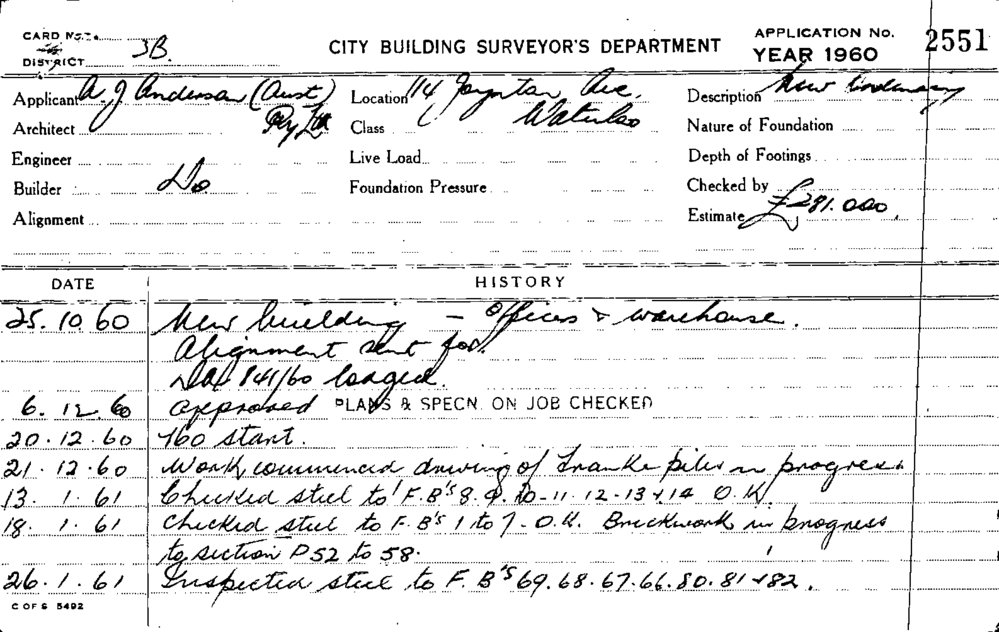 CARD No. 3B. CITY BUILDING SURVEYOR'S DEPARTMENT APPLICATION No. 2551
DISTRICT YEAR 1960
Applicant A. J Anderson (Aust) Location 114 Joynton Ave. Description New building
Architect Pty Ltd Class Waterloo Nature of Foundation
Engineer Live Load Depth of Footings
Builder Do Foundation Pressure Checked by
Alignment Estimate £281.000
DATE HISTORY
25.10.60 New building - Offices & warehouse.
Alignment sent for.
841/60 lodged.
6.12.60 approved PLANS & SPECN. ON JOB CHECKED
20.12.60 No start.
21.12.60 Work commenced driving of Franke piles in progress
13.1.61 Checked steel to F.B's 8.9.10-11-12-13+14 O.K.
18.1.61 Checked steel to F.B's 1 to 7-O.K. Brickwork in progress
to section P52 to 58.
26.1.61 Inspected steel to F.B's 69.68.67.66.80.81+82.
C OF S 5492